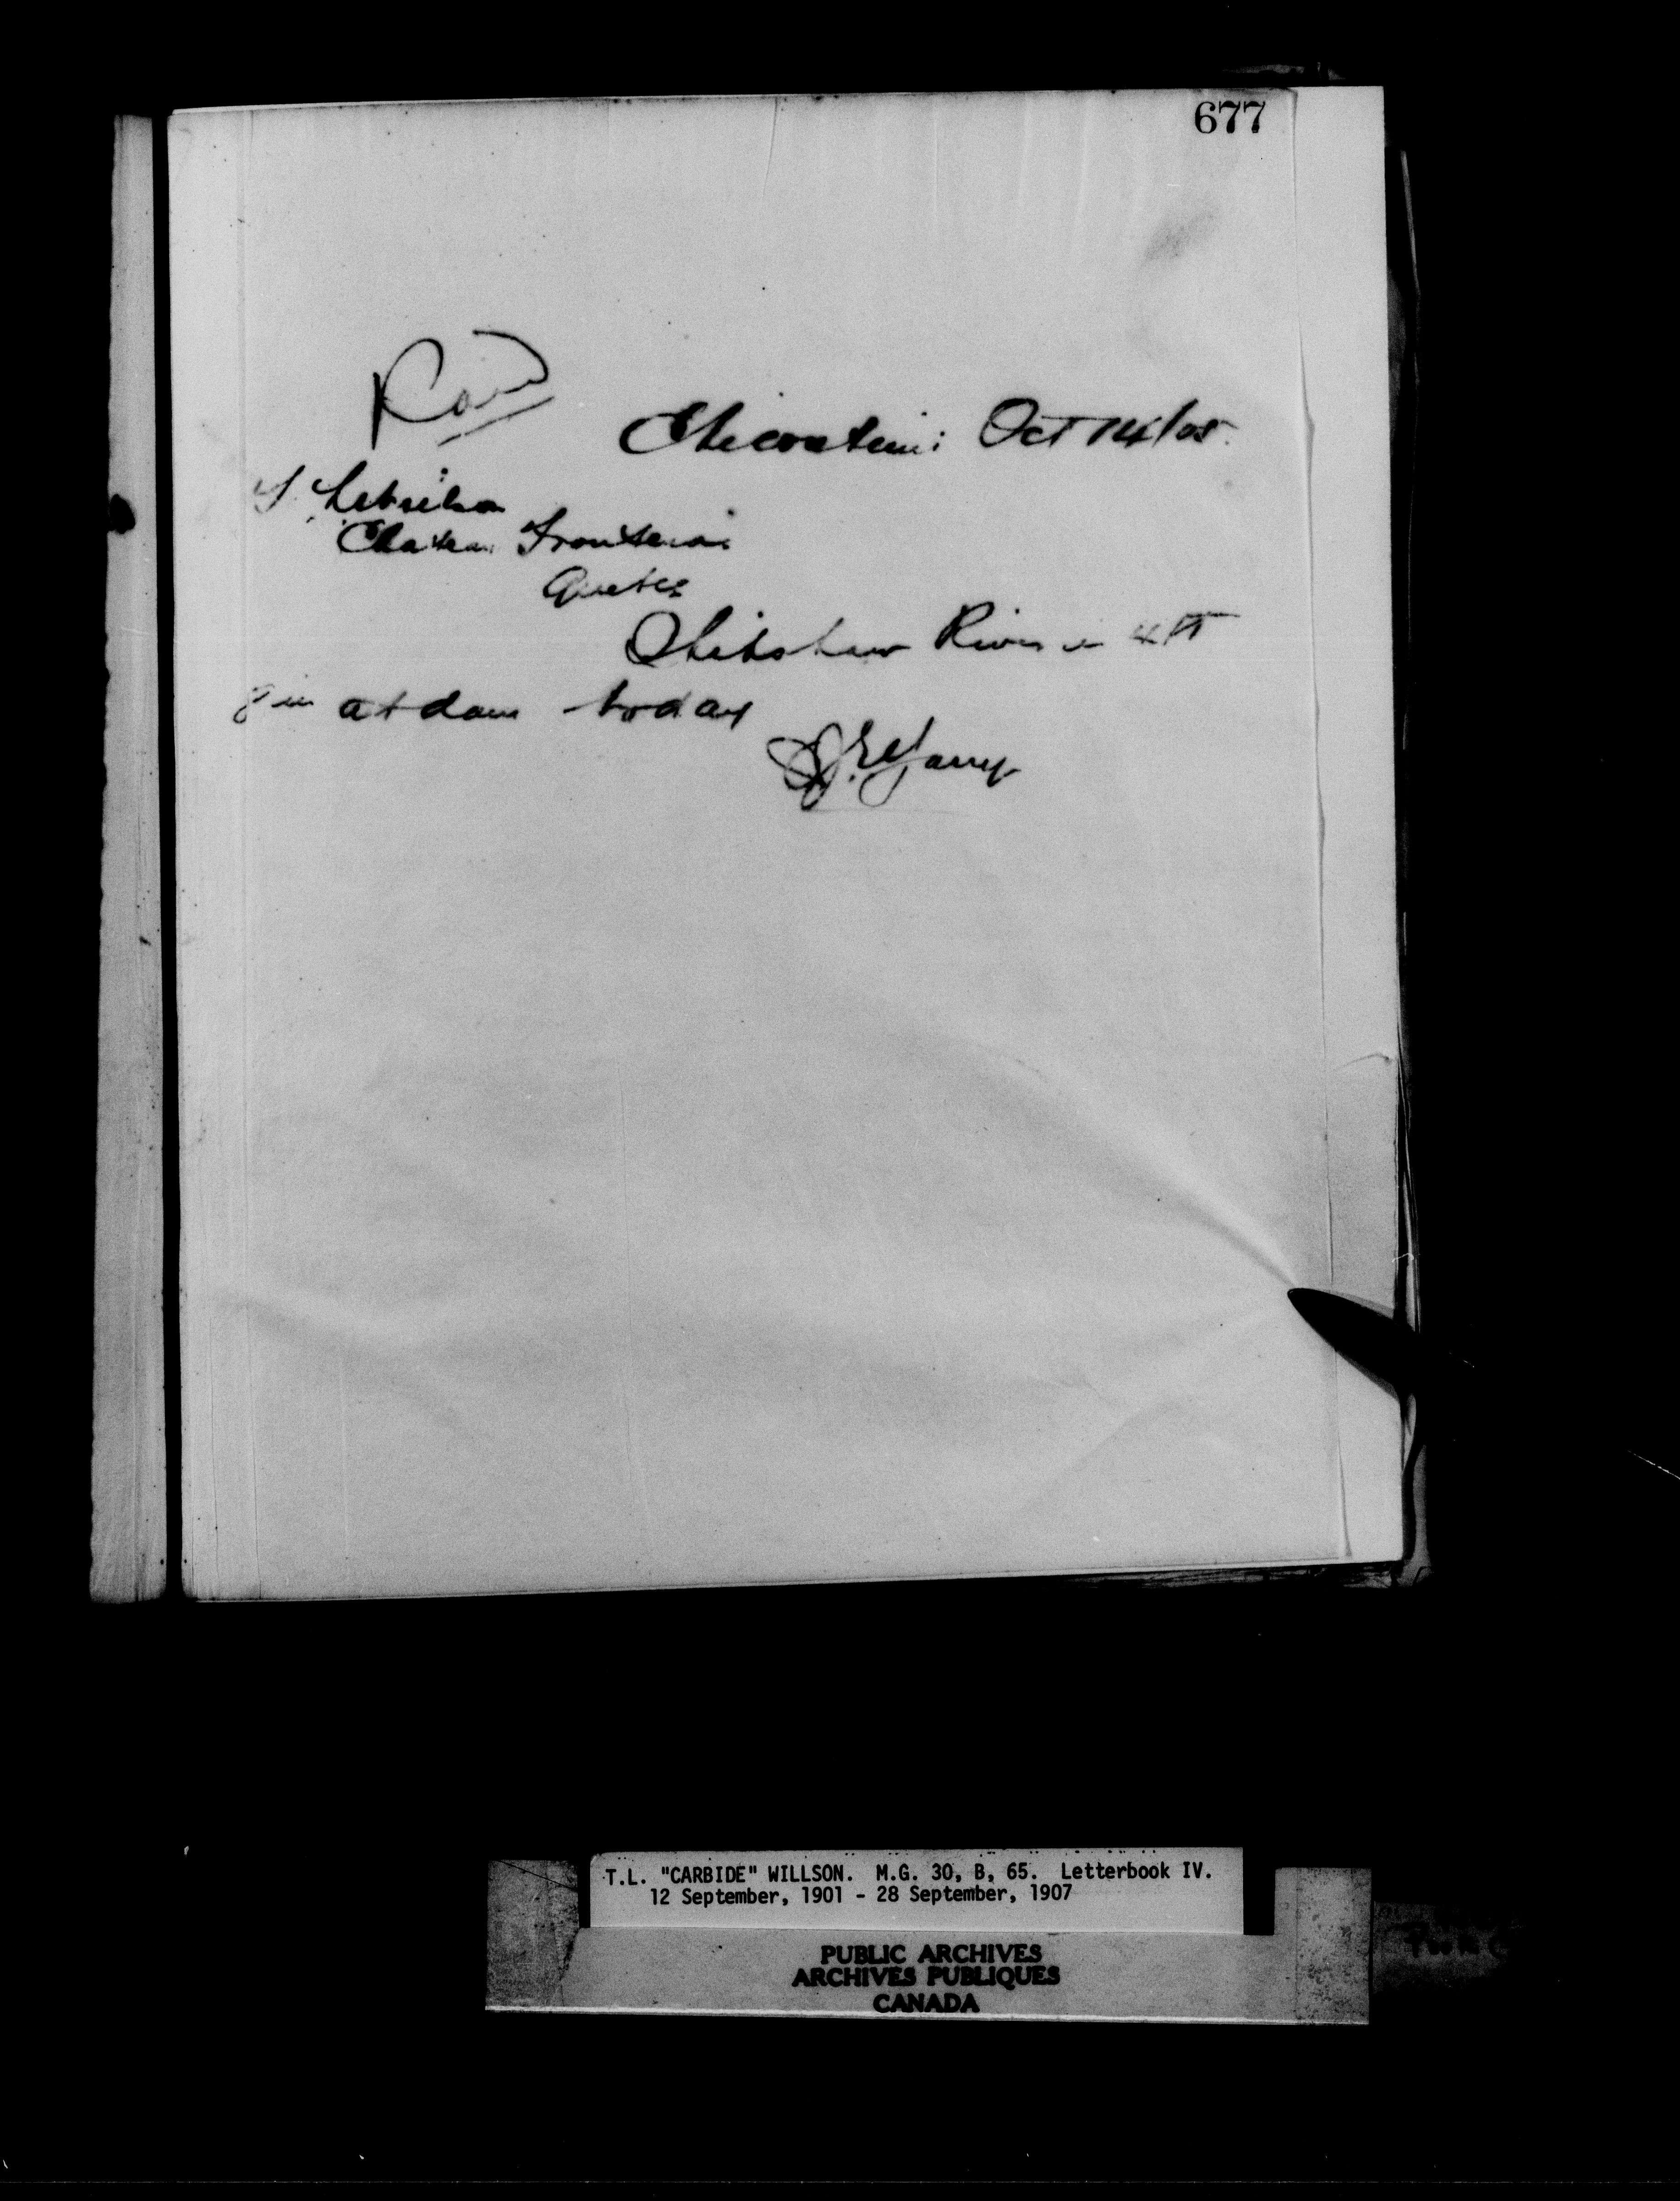 677
Paid
Chicoutimi Oct 14/05
T. L. Willson
Chateau Frontenac
Quebec
Shipshaw River is 4 ft
8 in at dam today
T.L. "CARBIDE" WILLSON. M.G. 30, B, 65. Letterbook IV.
12 September, 1901 - 28 September, 1907
PUBLIC ARCHIVES
ARCHIVES PUBLIQUES
CANADA